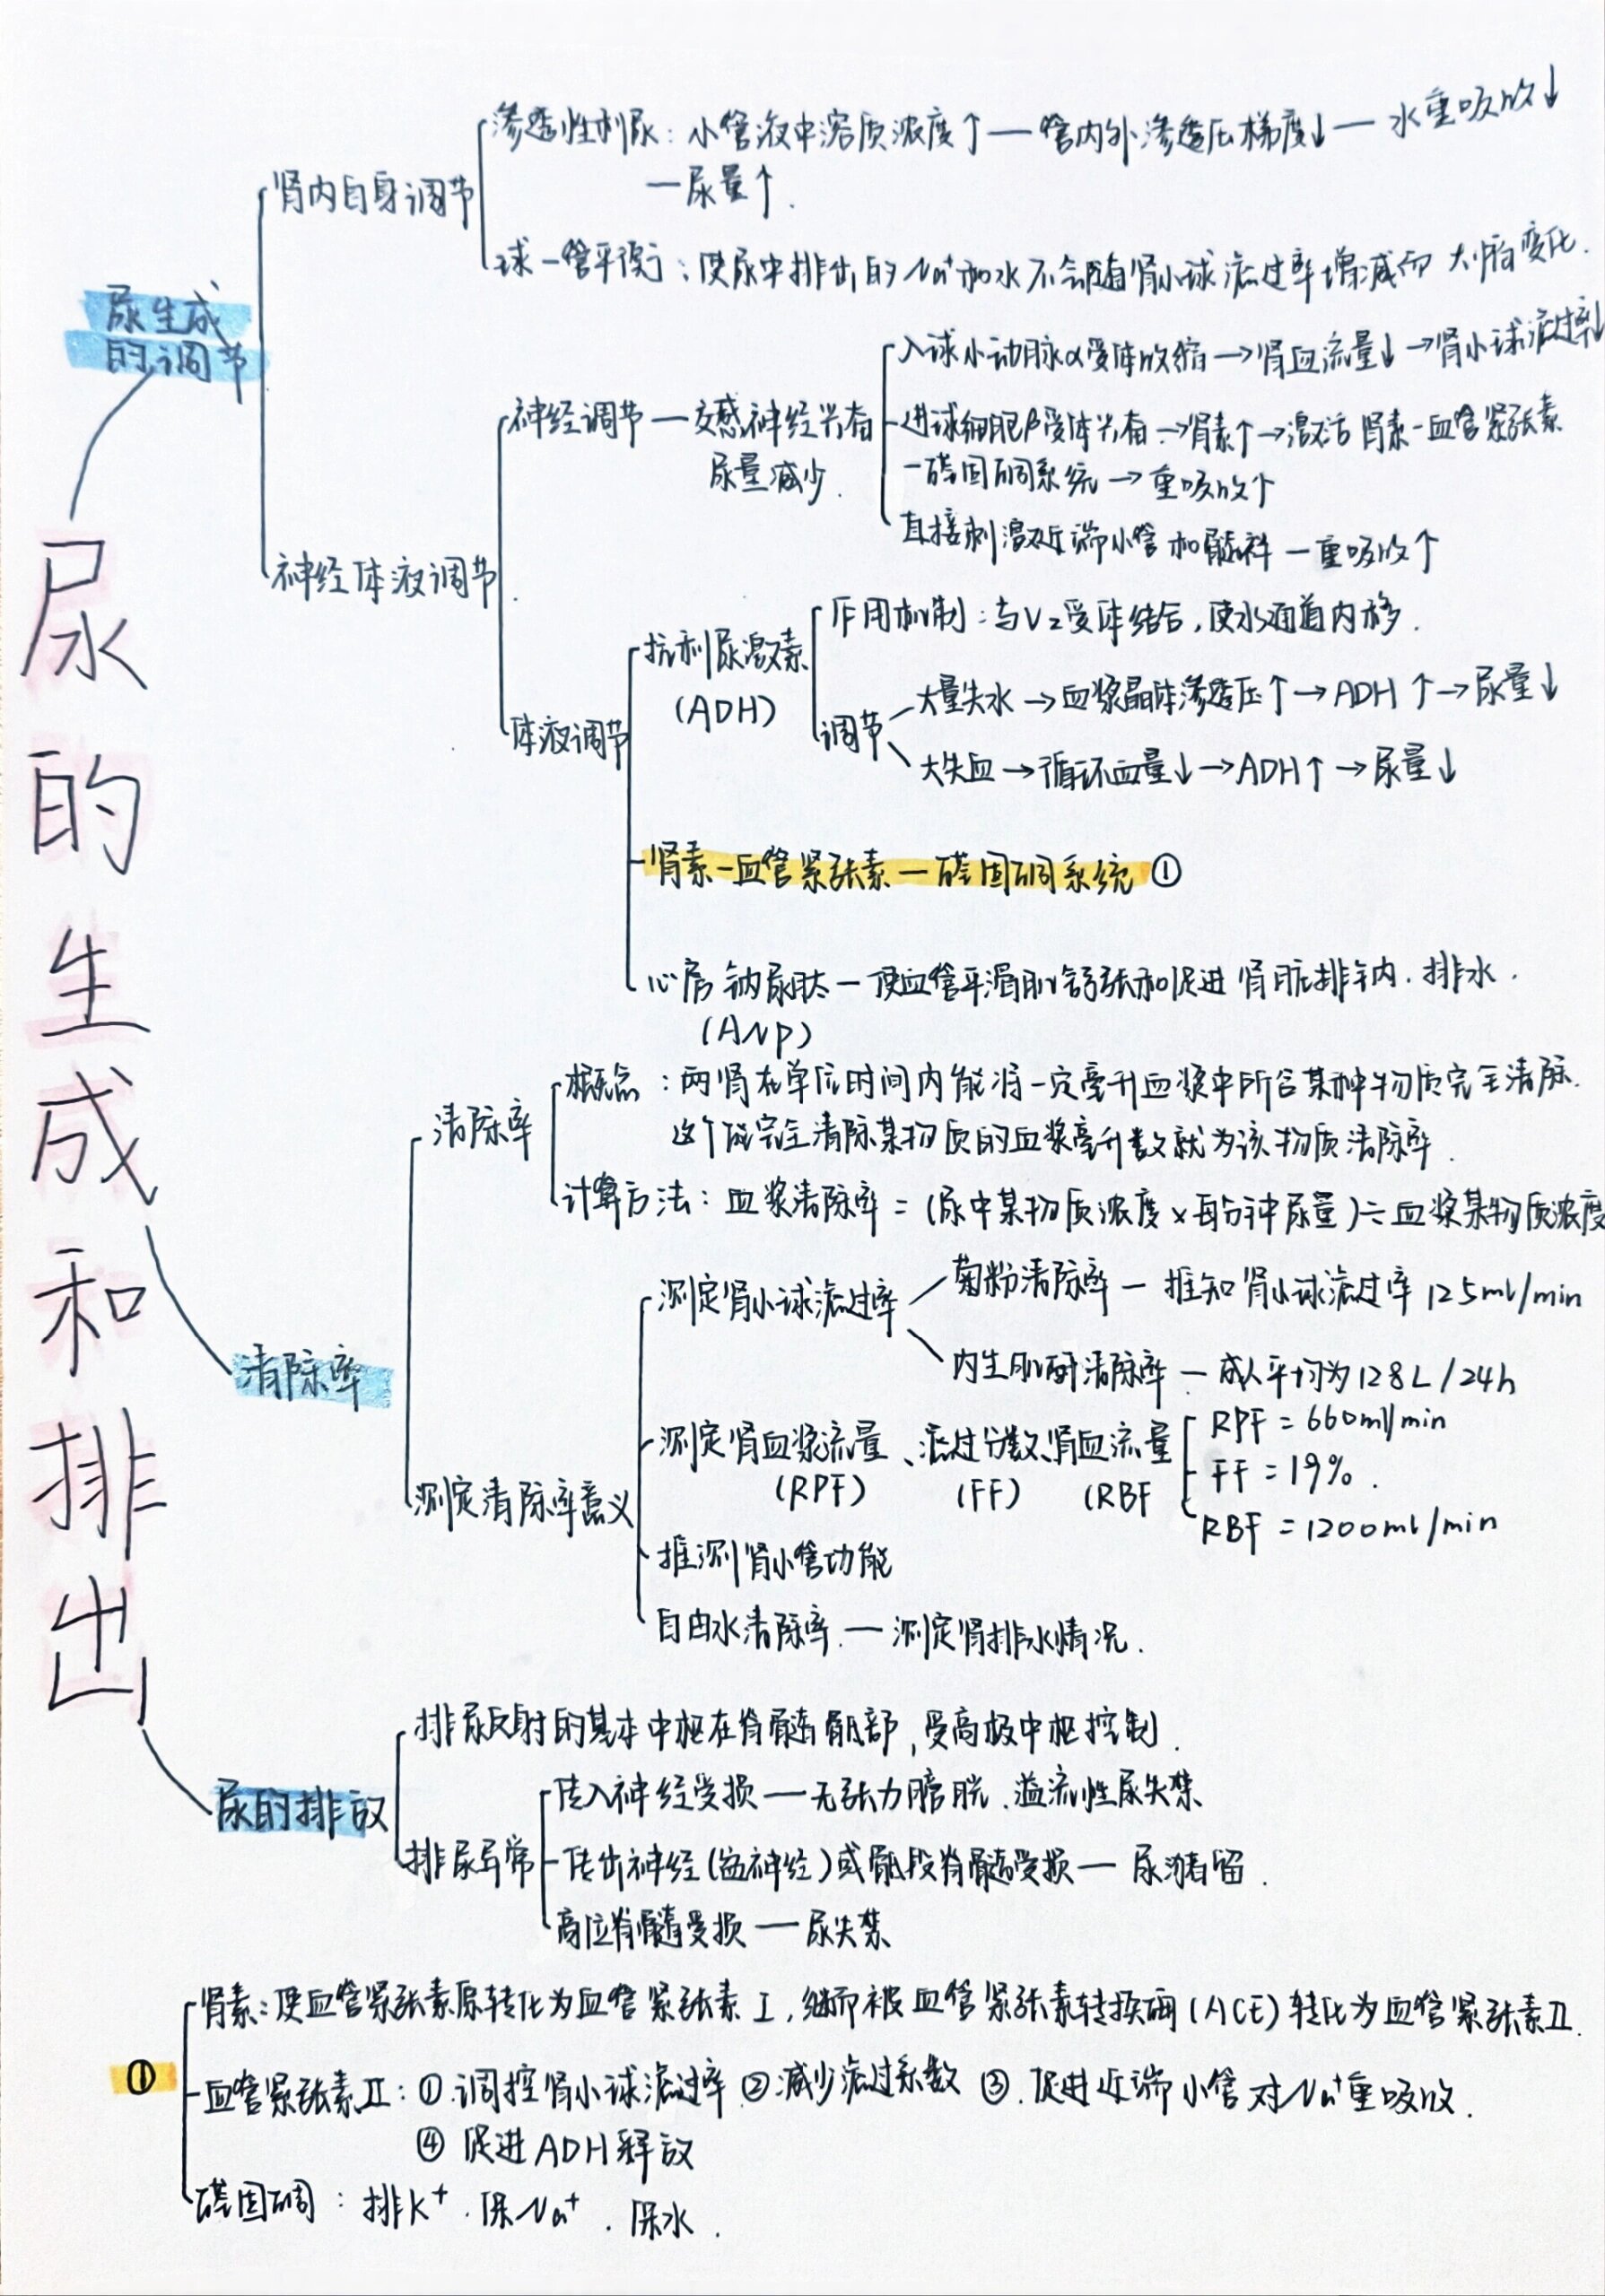 尿的生成和排出
尿生成
的调节
肾内自身调节
渗透性利尿：小管液中溶质浓度↑—管内外渗透压梯度↓—水重吸收↓
—尿量↑.
球-管平衡：使尿中排出的Na⁺和水不会随肾小球滤过率增减而大幅变化.
神经体液调节.
神经调节—交感神经兴奋
尿量减少.
入球小动脉α受体收缩→肾血流量↓→肾小球滤过率↓
近球细胞β受体兴奋→肾素↑→激活肾素-血管紧张素
-醛固酮系统→重吸收↑
直接刺激近端小管和髓袢—重吸收↑
体液调节
抗利尿激素
(ADH)
作用机制：与V₂受体结合,使水通道内移.
调节
大量失水→血浆晶体渗透压↑→ADH↑→尿量↓
大失血→循环血量↓→ADH↑→尿量↓
肾素-血管紧张素-醛固酮系统①
心房钠尿肽—使血管平滑肌舒张和促进肾脏排钠.排水.
(ANP)
清除率
清除率
概念：两肾在单位时间内能将一定毫升血浆中所含某种物质完全清除.
这个能完全清除某物质的血浆毫升数就为该物质清除率.
计算方法：血浆清除率=(尿中某物质浓度×每分钟尿量)÷血浆某物质浓度
测定清除率意义
测定肾小球滤过率
菊粉清除率—推知肾小球滤过率125ml/min
内生肌酐清除率—成人平均为128L/24h
测定肾血浆流量、滤过分数、肾血流量
(RPF) (FF) (RBF
RPF=660ml/min
FF=19%.
RBF=1200ml/min
推测肾小管功能
自由水清除率.—测定肾排水情况.
尿的排放
排尿反射的基本中枢在脊髓骶部,受高级中枢控制.
排尿异常
传入神经受损—无张力膀胱、溢流性尿失禁
传出神经(盆神经)或骶段脊髓受损—尿潴留.
高位脊髓受损—尿失禁
①
肾素：使血管紧张素原转化为血管紧张素Ⅰ,继而被血管紧张素转换酶(ACE)转化为血管紧张素Ⅱ.
血管紧张素Ⅱ：①.调控肾小球滤过率②减少滤过系数③.促进近端小管对Na⁺重吸收.
④促进ADH释放
醛固酮：排K⁺.保Na⁺.保水.